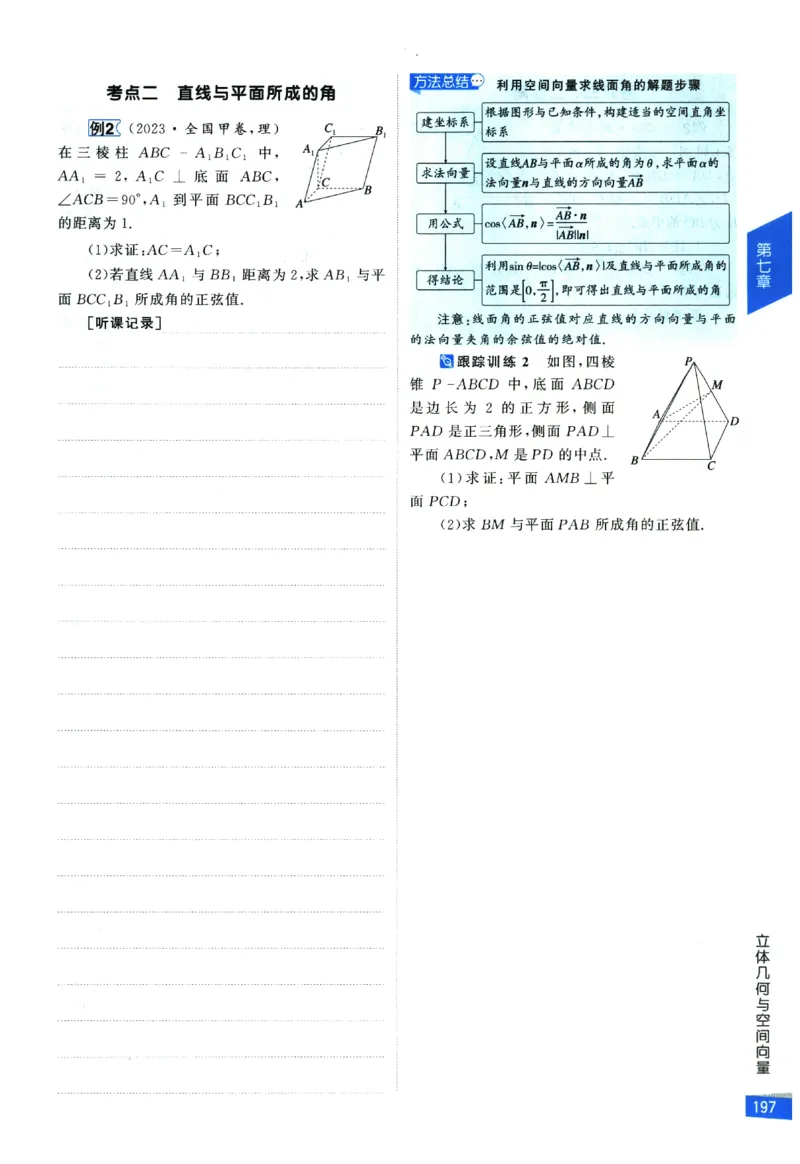 考点二 直线与平面所成的角
例2 (2023·全国甲卷,理)
在三棱柱 ABC-A₁B₁C₁ 中,
AA₁=2,A₁C⊥底面 ABC,
∠ACB=90°,A₁到平面 BCC₁B₁
的距离为1.
C₁
B₁
A₁
C
B
A
(1)求证:AC=A₁C;
(2)若直线 AA₁与 BB₁距离为2,求 AB₁与平
面 BCC₁B₁所成角的正弦值.
[听课记录]
方法总结 利用空间向量求线面角的解题步骤
建坐标系
根据图形与已知条件,构建适当的空间直角坐
标系
求法向量
设直线AB与平面α所成的角为θ,求平面α的
法向量n与直线的方向向量\overrightarrow{AB}
用公式
cos⟨\overrightarrow{AB},n⟩=\frac{\overrightarrow{AB}·n}{|\overrightarrow{AB}||n|}
得结论
利用sin θ=|cos⟨\overrightarrow{AB},n⟩|及直线与平面所成角的
范围是[0,\frac{π}{2}],即可得出直线与平面所成的角
注意:线面角的正弦值对应直线的方向向量与平面
的法向量夹角的余弦值的绝对值.
跟踪训练2 如图,四棱
锥 P-ABCD 中,底面 ABCD
是边长为 2 的正方形,侧面
PAD 是正三角形,侧面 PAD⊥
平面 ABCD,M 是 PD 的中点.
P
M
A
D
B
C
(1)求证:平面 AMB⊥平
面 PCD;
(2)求 BM 与平面 PAB 所成角的正弦值.
第七章
立体几何与空间向量
197